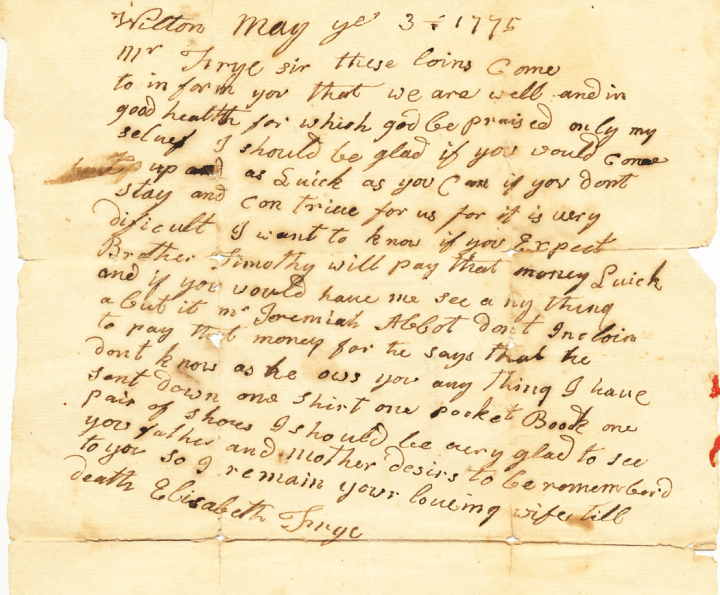 Wilton May ye 3 : 1775
Mr Frye sir these loins Come
to in form you that we are well and in
good health for which god be praised only my
selves I should be glad if you would Come
up and as Quick as you Can if you dont
stay and Con trive for us for it is very
dificult I want to know if you Expect
Brother Timothy will pay that money Quick
and if you would have me see a ny thing
a but it mr Jeremiah Abbot dont Incloin
to pay that money for he says that he
dont know as he ows you any thing I have
sent down one shirt one pocket Boock one
pair of shoes I should be very glad to see
you father and mother desirs to be romembord
to you so I remain your loveing wife till
death Elisabeth Frye